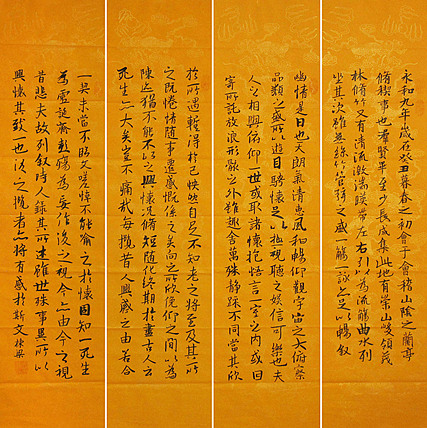 永和九年歲在癸丑暮春之初會于會稽山陰之蘭亭
脩禊事也群賢畢至少長咸集此地有崇山峻領茂
林脩竹又有清流激湍映帶左右引以為流觴曲水列
坐其次雖無絲竹管弦之盛一觴一詠亦足以暢敘
幽情是日也天朗氣清惠風和暢仰觀宇宙之大俯察
品類之盛所以遊目騁懷足以極視聽之娛信可樂也夫
人之相與俯仰一世或取諸懷抱悟言一室之內或因
寄所託放浪形骸之外雖趣舍萬殊靜躁不同當其欣
於所遇暫得於己怏然自足不知老之將至及其所
之既惓情隨事遷感慨係之矣向之所欣俛仰之間以為
陳迹猶不能不以之興懷況脩短隨化終期於盡古人云
死生亦大矣豈不痛哉每攬昔人興感之由若合
一契未嘗不臨文嗟悼不能喻之於懷固知一死生
為虛誕齊彭殤為妄作後之視今亦由今之視
昔悲夫故列敘時人錄其所述雖世殊事異所以
興懷其致一也後之攬者亦將有感於斯文